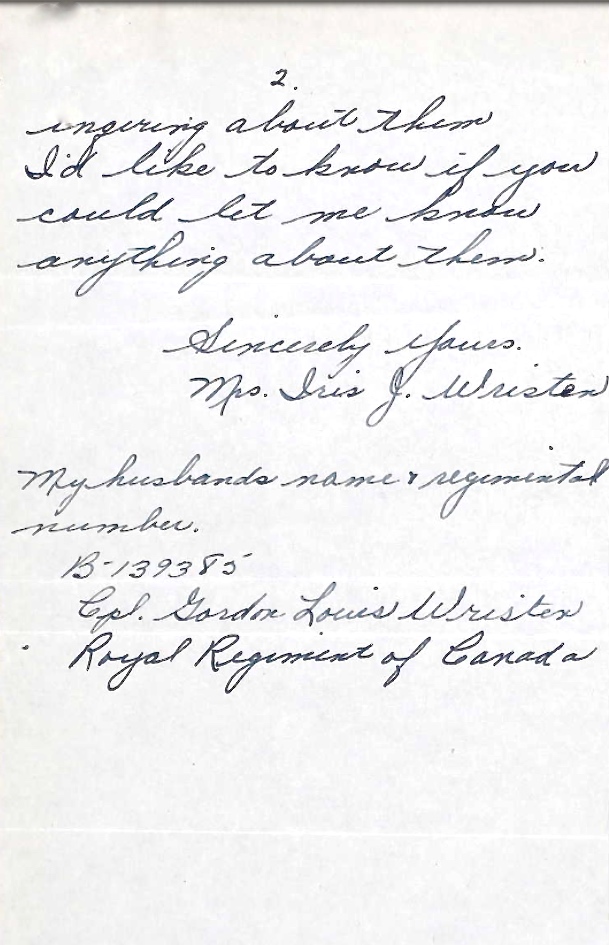 2.
inqiring about them
I'd like to know if you
could let me know
anything about them.
Sincerely Yours.
Mrs. Iris J. Wristen
My husbands name & regimental
number.
B-139385
Cpl. Gordon Louis Wristen
Royal Regiment of Canada